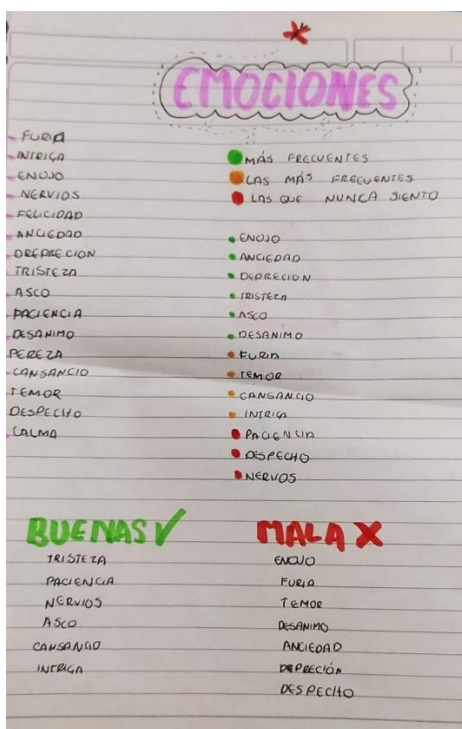 EMOCIONES
FURIA
INTRIGA
ENOJO
NERVIOS
FELICIDAD
ANCIEDAD
DREPRECION
TRISTEZA
ASCO
PACIENCIA
DESANIMO
PEREZA
CANSANCIO
TEMOR
DESPECHO
CALMA
MÁS FRECUENTES
LAS MÁS FRECUENTES
LAS QUE NUNCA SIENTO
ENOJO
ANCIEDAD
DEPRECION
TRISTEZA
ASCO
DESANIMO
FURIA
TEMOR
CANSANCIO
INTRIGA
PACIENCIA
DESPECHO
NERVOS
BUENAS ✓
TRISTEZA
PACIENCIA
NERVIOS
ASCO
CANSANCIO
INTRIGA
MALA X
ENOJO
FURIA
TEMOR
DESANIMO
ANCIEDAD
DEPRECIÓN
DESPECHO